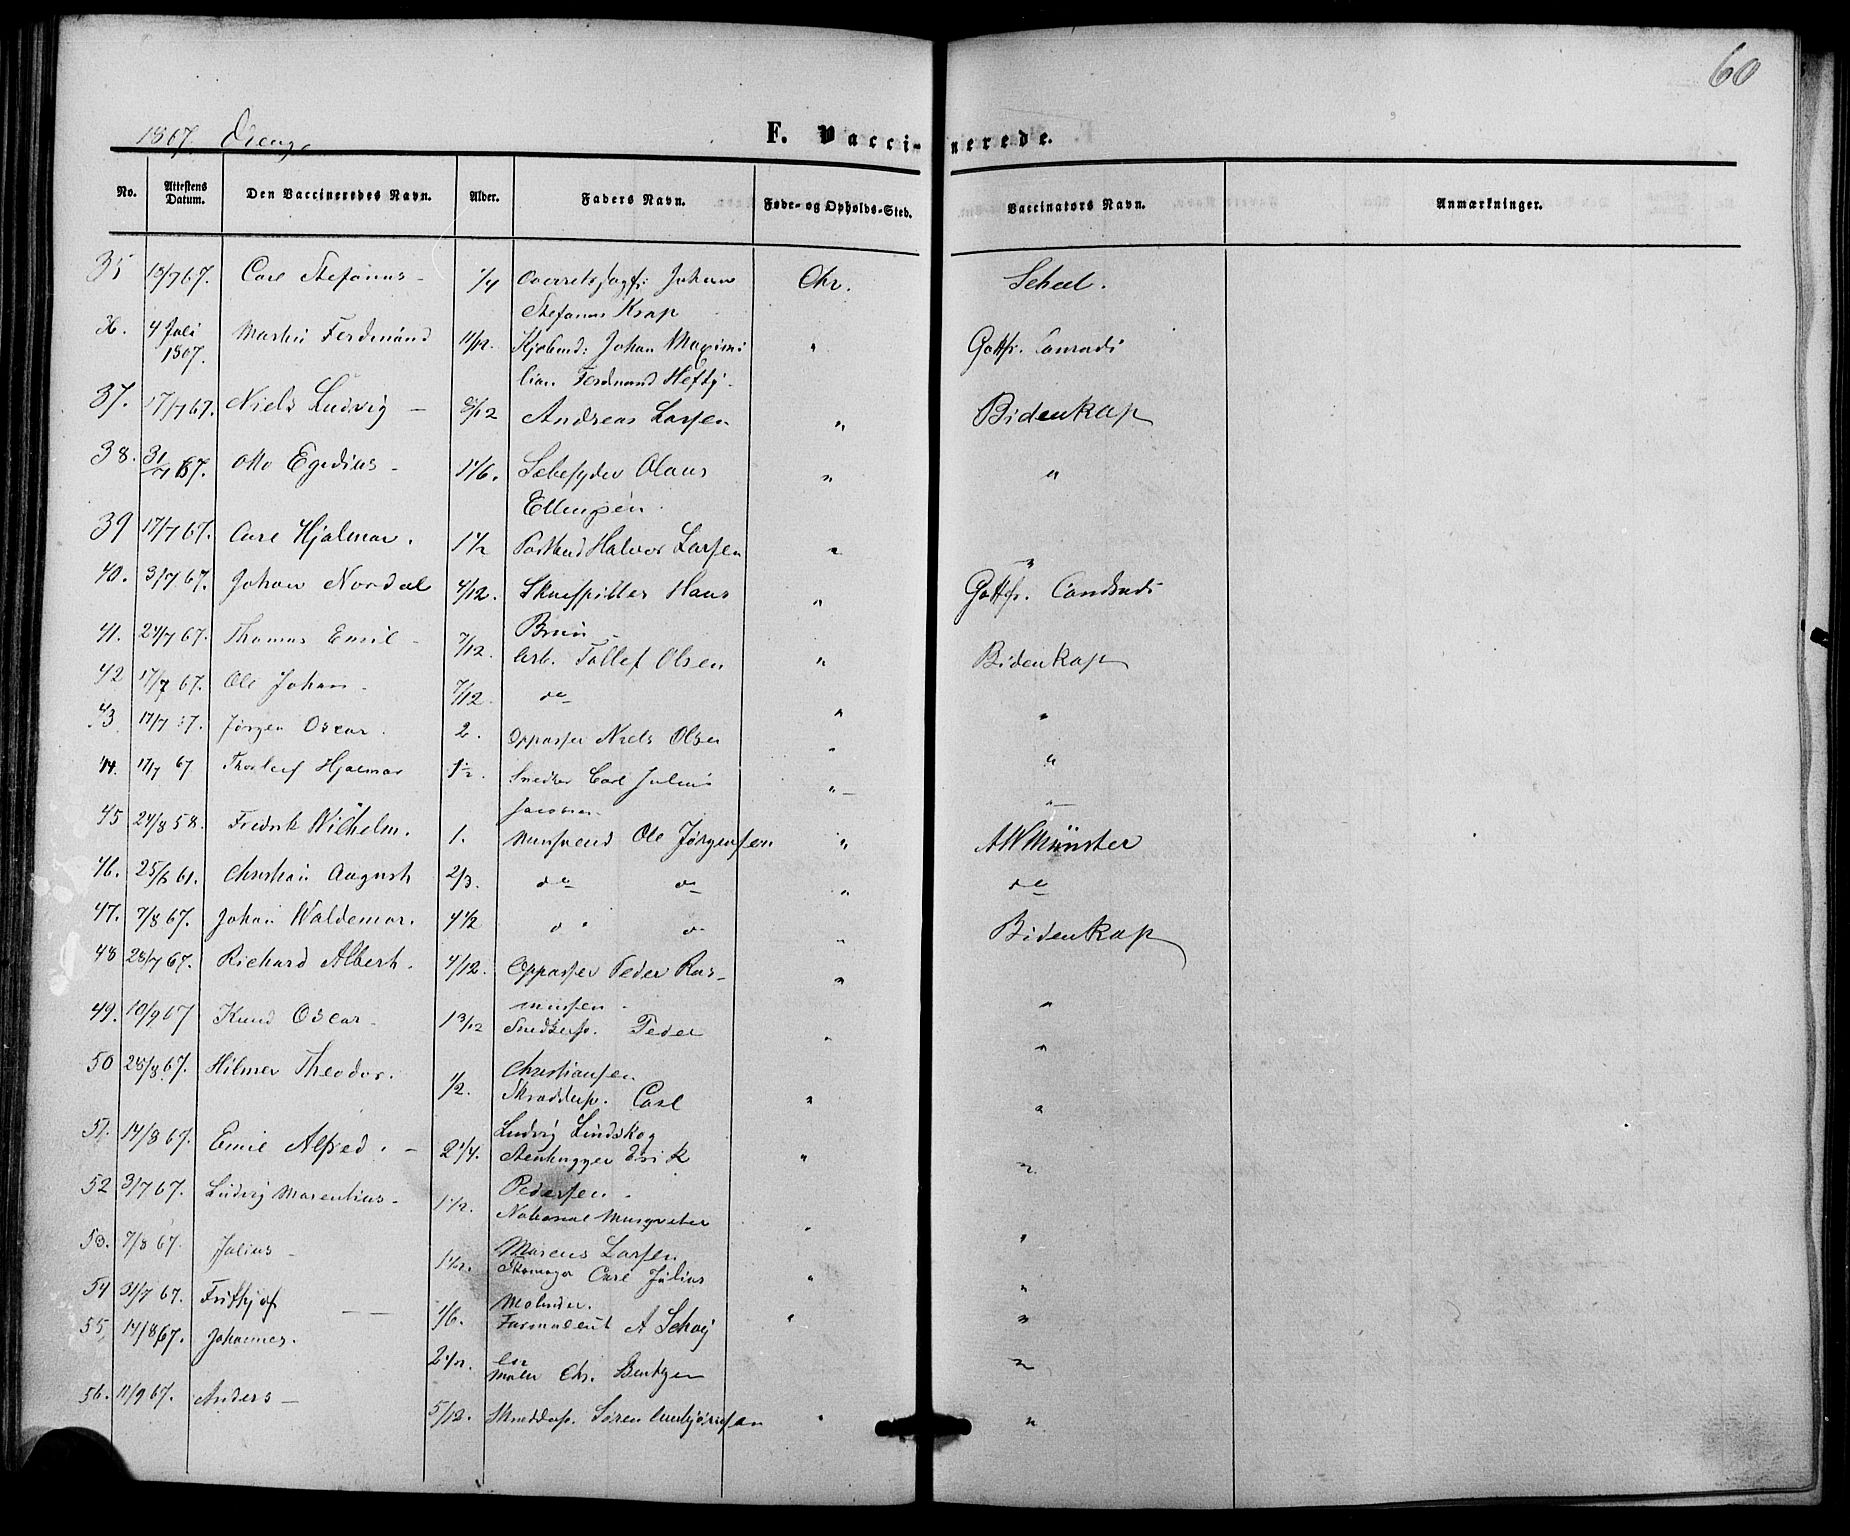 60
1867. Drenge
F. Vaccinerede.
No. Attestens Datum. Den Vaccineredes Navn. Alder. Faders Navn. Føde- og Opholds-Sted. Vaccinators Navn. Anmærkninger.
35 13/7 67. Carl Stefanus - 1/4 Overretssagf: Johan Chr. Scheel.
Stefanus Krap
36. 4 Juli 1867. Martin Ferdinand 11/12. Kjøbmd: Johan Maximi " Gottfr. Conradi
lian Ferdinand Heftÿ.
37. 17/7 67. Niels Ludvig - 8/12 Andreas Larsen " Bidenkap
38. 31/7 67. Otto Egidius - 1 1/6. Olaus " "
Ellingsen.
39 17/7 67. Carl Hjalmar. 1 1/2 Postbud Halvor Larsen " "
40. 3/7 67. Johan Nordal 4/12. Skuespiller Hans " Gottfr. Conradi
Brun
41. 24/7 67. Thomas Emil - 7/12. Arb. Tollef Olsen " Bidenkap
42 17/7 67. Ole Johan. 7/12. do " "
43 17/7 67. Jørgen Oscar. 2. Oppasser Niels Olsen " "
44. 17/7 67 Thorleif Hjalmar 1 1/2. Snedker Carl Julius " "
Jacobsen.
45 24/8 58. Fredrik Wilhelm. 1. Ole Jørgensen " AWMünster
46. 25/6 61. Christian August 2/3. do do " do
47. 7/8 67. Johan Waldemar. 4 1/2 do do " Bidenkap
48 28/7 67. Richard Albert. 4/12. Oppasser Peder Ras- " "
mussen.
49. 10/9 67 Knud Oscar - 1 3/12 Snedkersv. Peder " "
Christiansen
50 28/8 67. Hilmer Theodor. 1/2. Skræddersv. Carl " "
Ludvig Lindskog
51. 14/8 67. Emil Alfred. - 2 1/4. Stenhugger Erik " "
Pedersen.
52 3/7 67. Ludvig Marentius - 1 1/2. National Musqueter " "
Marcus Larsen
53. 7/8 67. Julius - 1 1/2. Skomager Carl Julius " "
Molander.
54 31/7 67. Frithjof 1/6. A Schøy " "
55. 14/8 67. Johannes. Maler Chr. Bentzen "
56. 11/9 67. Anders - 5/12. Skræddersv. Søren " "